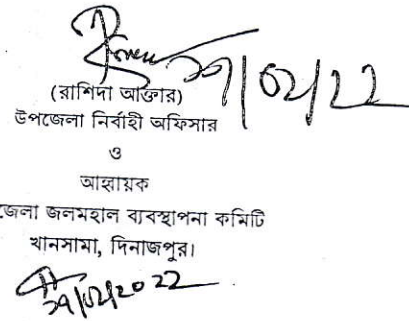 ২৭/০২/২২
(রাশিদা আক্তার)
উপজেলা নির্বাহী অফিসার
ও
আহ্বায়ক
জেলা জলমহাল ব্যবস্থাপনা কমিটি
খানসামা, দিনাজপুর।
২৭/০২/২০২২